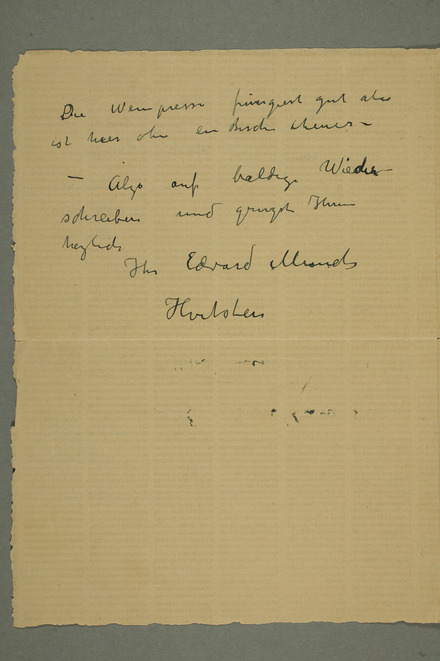 Die Weinpresse fungiert gut aber
ist hier ohne
– Also auf baldige Wieder
schreiben und grüzst Ihnen
herzlich
Ihr Edvard Munch
Hvitsten